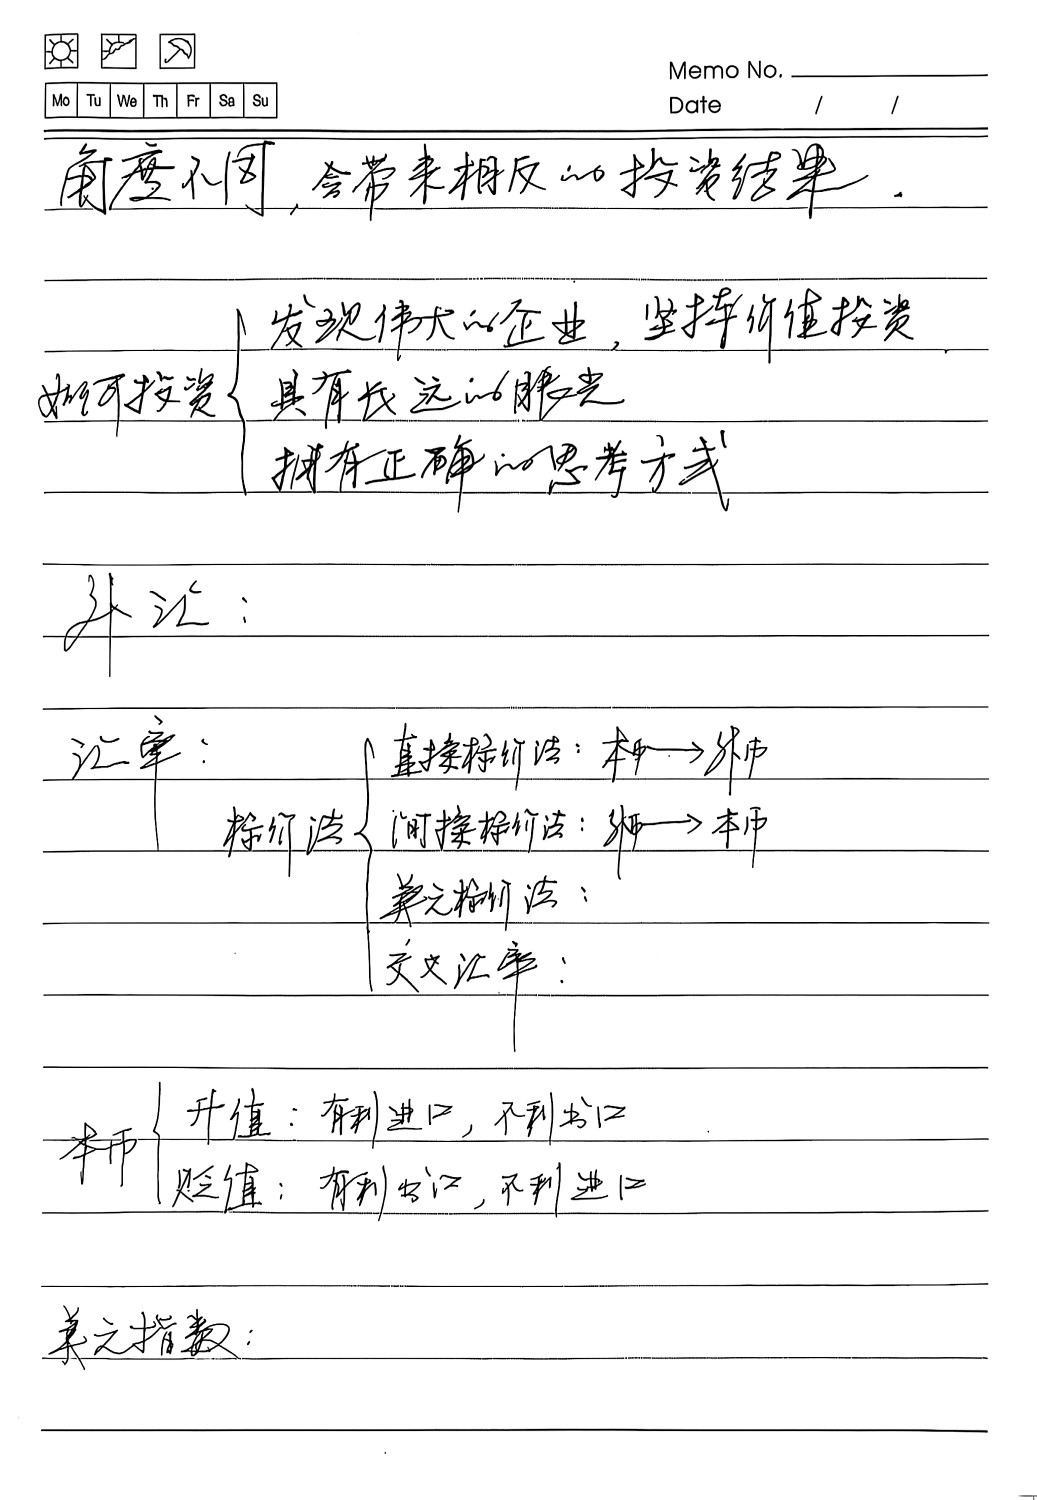 Memo No.
Mo Tu We Th Fr Sa Su
Date / /
角度不同，会带来相反的投资结果.
发现伟大的企业，坚持价值投资
如何投资
具有长远的眼光
拥有正确的思考方式
外汇：
汇率：
直接标价法：本币→外币
标价法
间接标价法：外币→本币
美元标价法：
交叉汇率：
升值：有利进口，不利出口
本币
贬值：有利出口，不利进口
美元指数：